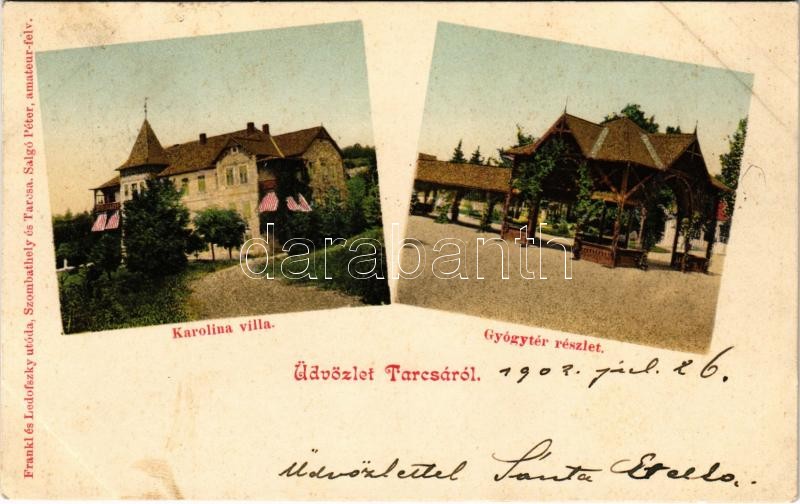 Frankl és Ledofszky utóda, Szombathely és Tarcsa. Salgó Péter, amateur-felv.
Karolina villa.
Gyógytér részlet.
darabanth
Üdvözlet Tarcsáról.
1902. júl. 26.
Üdvözlettel Sánta